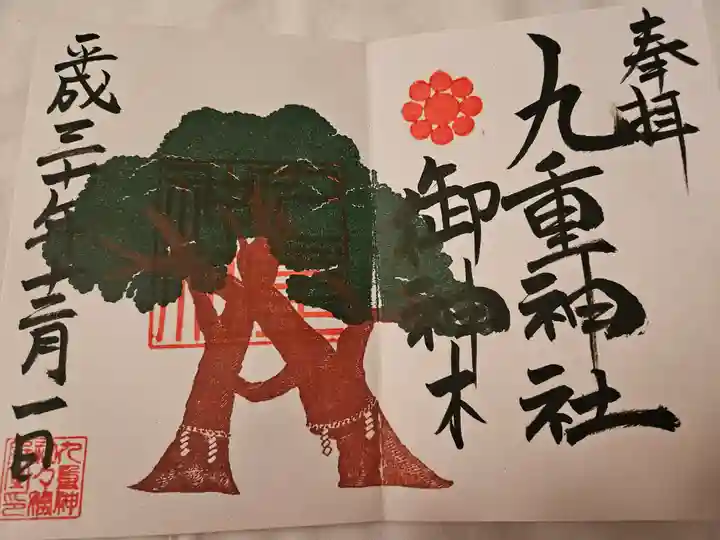 奉拝
九重神社
御神木
平成三十年十二月一日